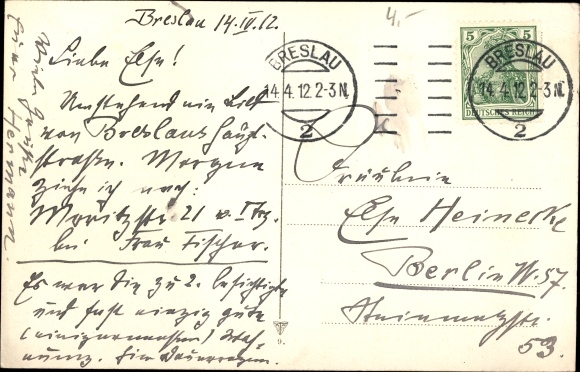 Breslau 14.IV.12.
Liebe Else!
Umstehend ein Bild
von Breslaus Haupt-
straße. Morgen
ziehe ich nach:
Moritzstr. 21 v. I
bei Frau Fischer.
Es war die zu 2. besichtigte
und fast einzig gute
(einigermassen) Woh-
nung. Ein
Viele Grüße
Hermann.
4.-
BRESLAU
14.4.12.2-3N.
2
5 5
DEUTSCHES REICH
BRESLAU
14.4.12.2-3N.
2
Fräulein
Else Heinecke
Berlin W. 57.
Steinmetzstr.
53.
9.